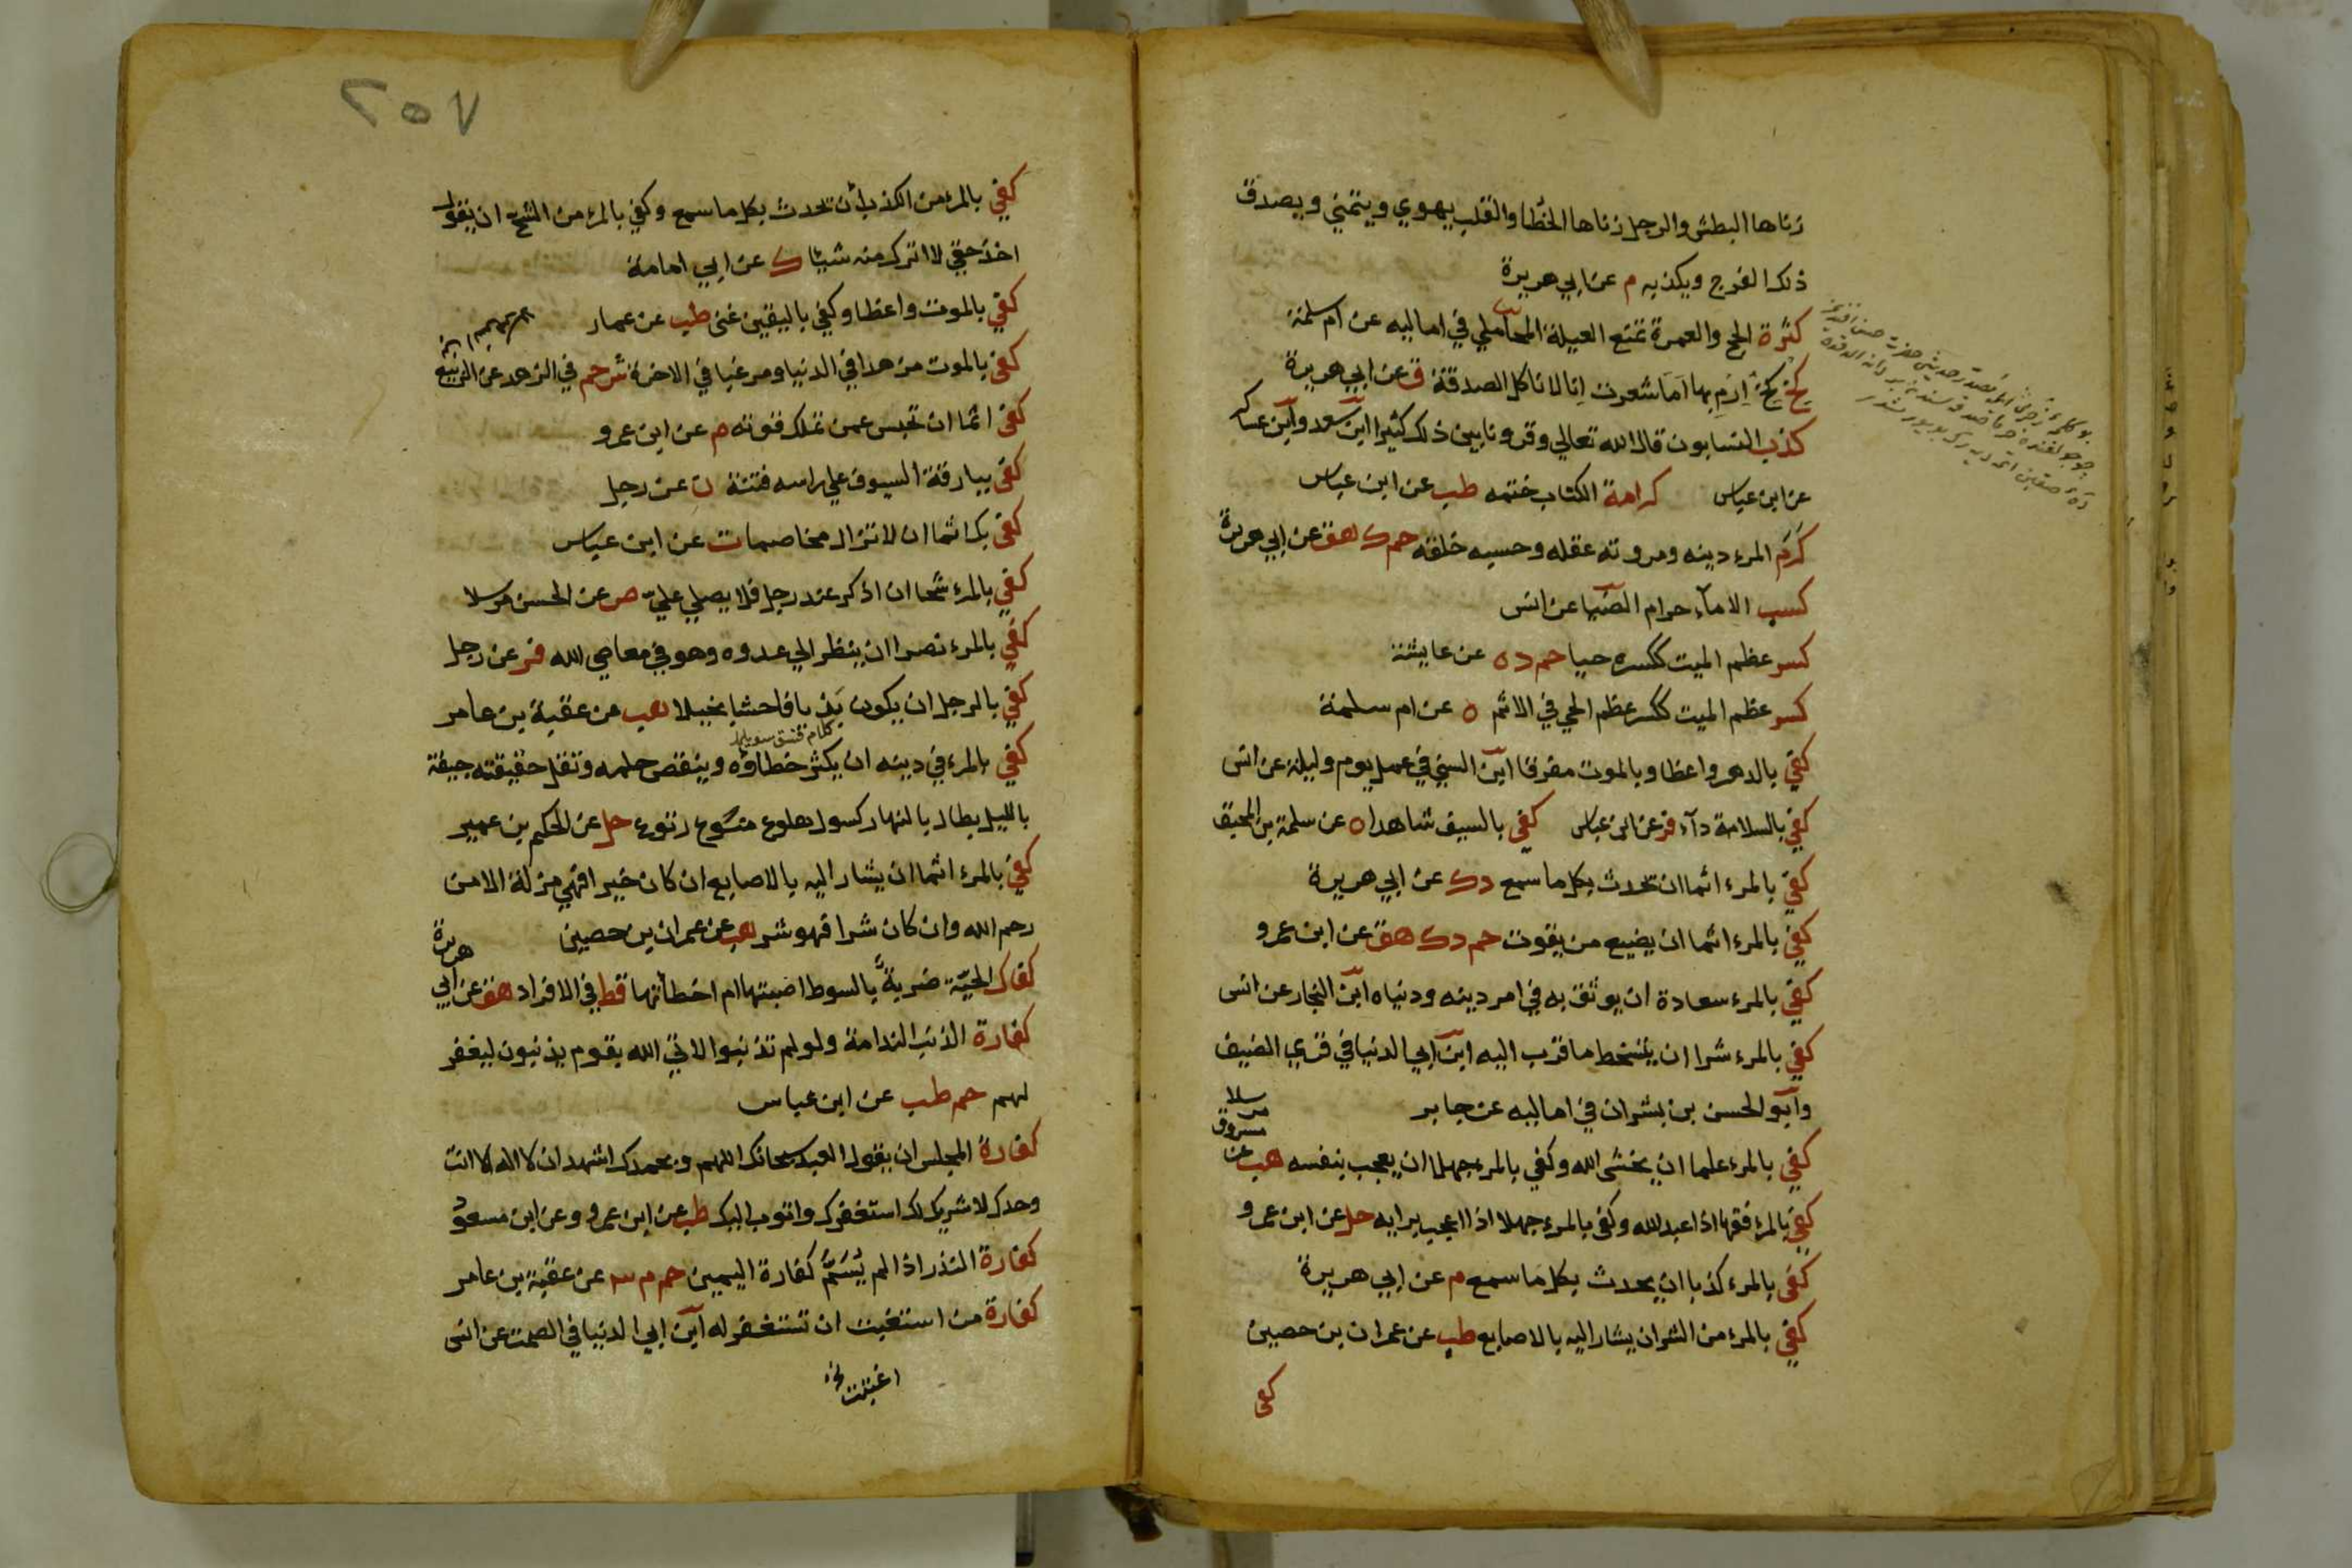 زناها البطش والرجل زناها الخطا والقلب يهوي ويتمني ويصدق
ذلك الفرج ويكذبه م عن ابي هريرة
كثرة الحج والعمرة تمنع العيلة المحاملي في اماليه عن ام سلمة
كخ كخ ارم بها اما شعرت انا لا ناكل الصدقة ق عن ابي هريرة
كذب النسابون قال الله تعالي وقرونا بين ذلك كثيرا ابن سعد وابن عساكر
عن ابن عباس كرامة الكتاب ختمه طب عن ابن عباس
كرم المرء دينه ومروته عقله وحسبه خلقه حم ك هق عن ابي هريرة
كسب الامآء حرام الضيا عن انس
كسر عظم الميت ككسره حيا حم د ه عن عايشة
كسر عظم الميت ككسر عظم الحي في الاثم ه عن ام سلمة
كفي بالدهر واعظا وبالموت مفرقا ابن السني في عمل يوم وليلة عن انس
كفي بالسلامة دآء فر عن ابن عباس كفي بالسيف شاهدا ه عن سلمة بن المحبق
كفي بالمرء اثما ان تحدث بكل ما سمع د ك عن ابي هريرة
كفي بالمرء اثما ان يضيع من يقوت حم د ك هق عن ابن عمرو
كفي بالمرء سعادة ان يوثق به في امر دينه ودنياه ابن النجار عن انس
كفي بالمرء شرا ان يتسخط ما قرب اليه ابن ابي الدنيا في قري الضيف
وابو الحسن بن بشران في اماليه عن جابر
كفي بالمرء علما ان يخشى الله وكفي بالمرء جهلا ان يعجب بنفسه هب عن
مسروق
مرسلا
كفي بالمرء فقها اذا عبد الله وكفى بالمرء جهلا اذا اعجب برايه حل عن ابن عمرو
كفى بالمرء كذبا ان يحدث بكل ما سمع م عن ابي هريرة
كفي بالمرء من الشر ان يشار اليه بالاصابع طب عن عمران بن حصين
كفى
٢٥٧
كفي بالمرء من الكذب أن تحدث بكل ما سمع وكفي بالمرء من الشح ان يقول
اخذ حقي لا اترك منه شيئا ك عن ابي امامة
كفي بالموت واعظا وكفي باليقين غنى طب عن عمار
كفى بالموت مزهدا في الدنيا ومرغبا في الاخرة ش حم في الزهد عن الربيع
كفى اثما ان تحبس عمن تملك قوته م عن ابن عمرو
كفى ببارقة السيوف علي راسه فتنة ن عن رجل
كفى بك اثما ان لا تزال مخاصما ت عن ابن عباس
كفي بالمرء شحا ان اذكر عند رجل فلا يصلي علي ص عن الحسن مرسلا
كفي بالمرء نصرا ان ينظر الي عدوه وهو في معاصي الله فر عن رجل
كفي بالرجل ان يكون بذيا فاحشا بخيلا هب من عقبة بن عامر
كفي بالمرء في دينه ان يكثر خطاؤه وينقص حلمه وتقل حقيقته جيفة
بالليل بطال بالنهار كسول هلوع منوع رتوع حل عن الحكم بن عمير
كفي بالمرء اثما ان يشار اليه بالاصابع ان كان خيرا فهي مزلة الا من
رحم الله وان كان شرا فهو شر هب عن عمران بن حصين
كفاك الحية ضربة بالسوط اصبتها ام اخطأتها قط في الافراد هق عن ابي
هريرة
كفارة الذنب الندامة ولو لم تذنبوا لاتي الله بقوم يذنبون ليغفر
لهم حم طب عن ابن عباس
كفارة المجلس ان يقول العبد سبحانك اللهم وبحمدك اشهد ان لا اله الا انت
وحدك لا شريك لك استغفرك واتوب اليك طب عن ابن عمرو وعن ابن مسعود
كفارة النذر اذا لم يسم كفارة اليمين حم م ٣ عن عقبة بن عامر
كفارة من استغبت ان تستغفر له ابن ابي الدنيا في الصمت عن انس
اغتبت نخ